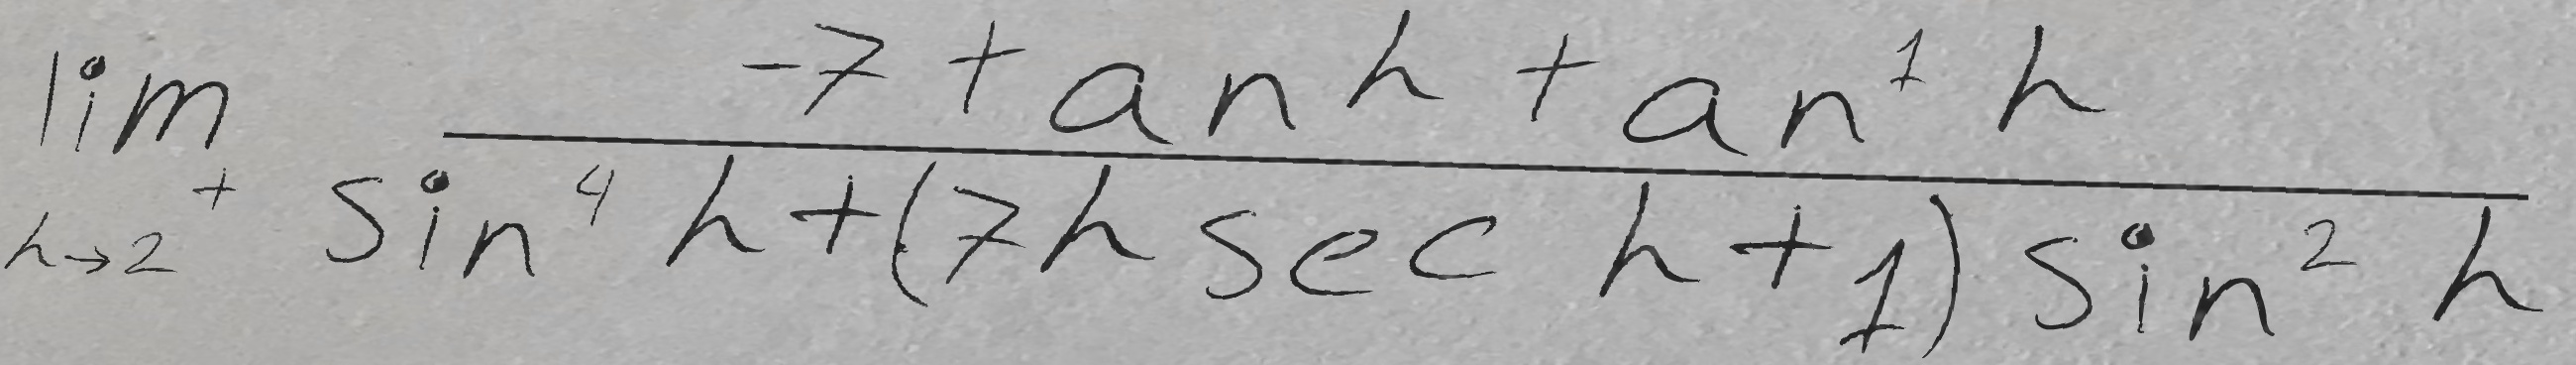 \lim_{h \to 2^+} \frac{-7 \tan h + \tan^1 h}{\sin^4 h + (7h \sec h + 1) \sin^2 h}